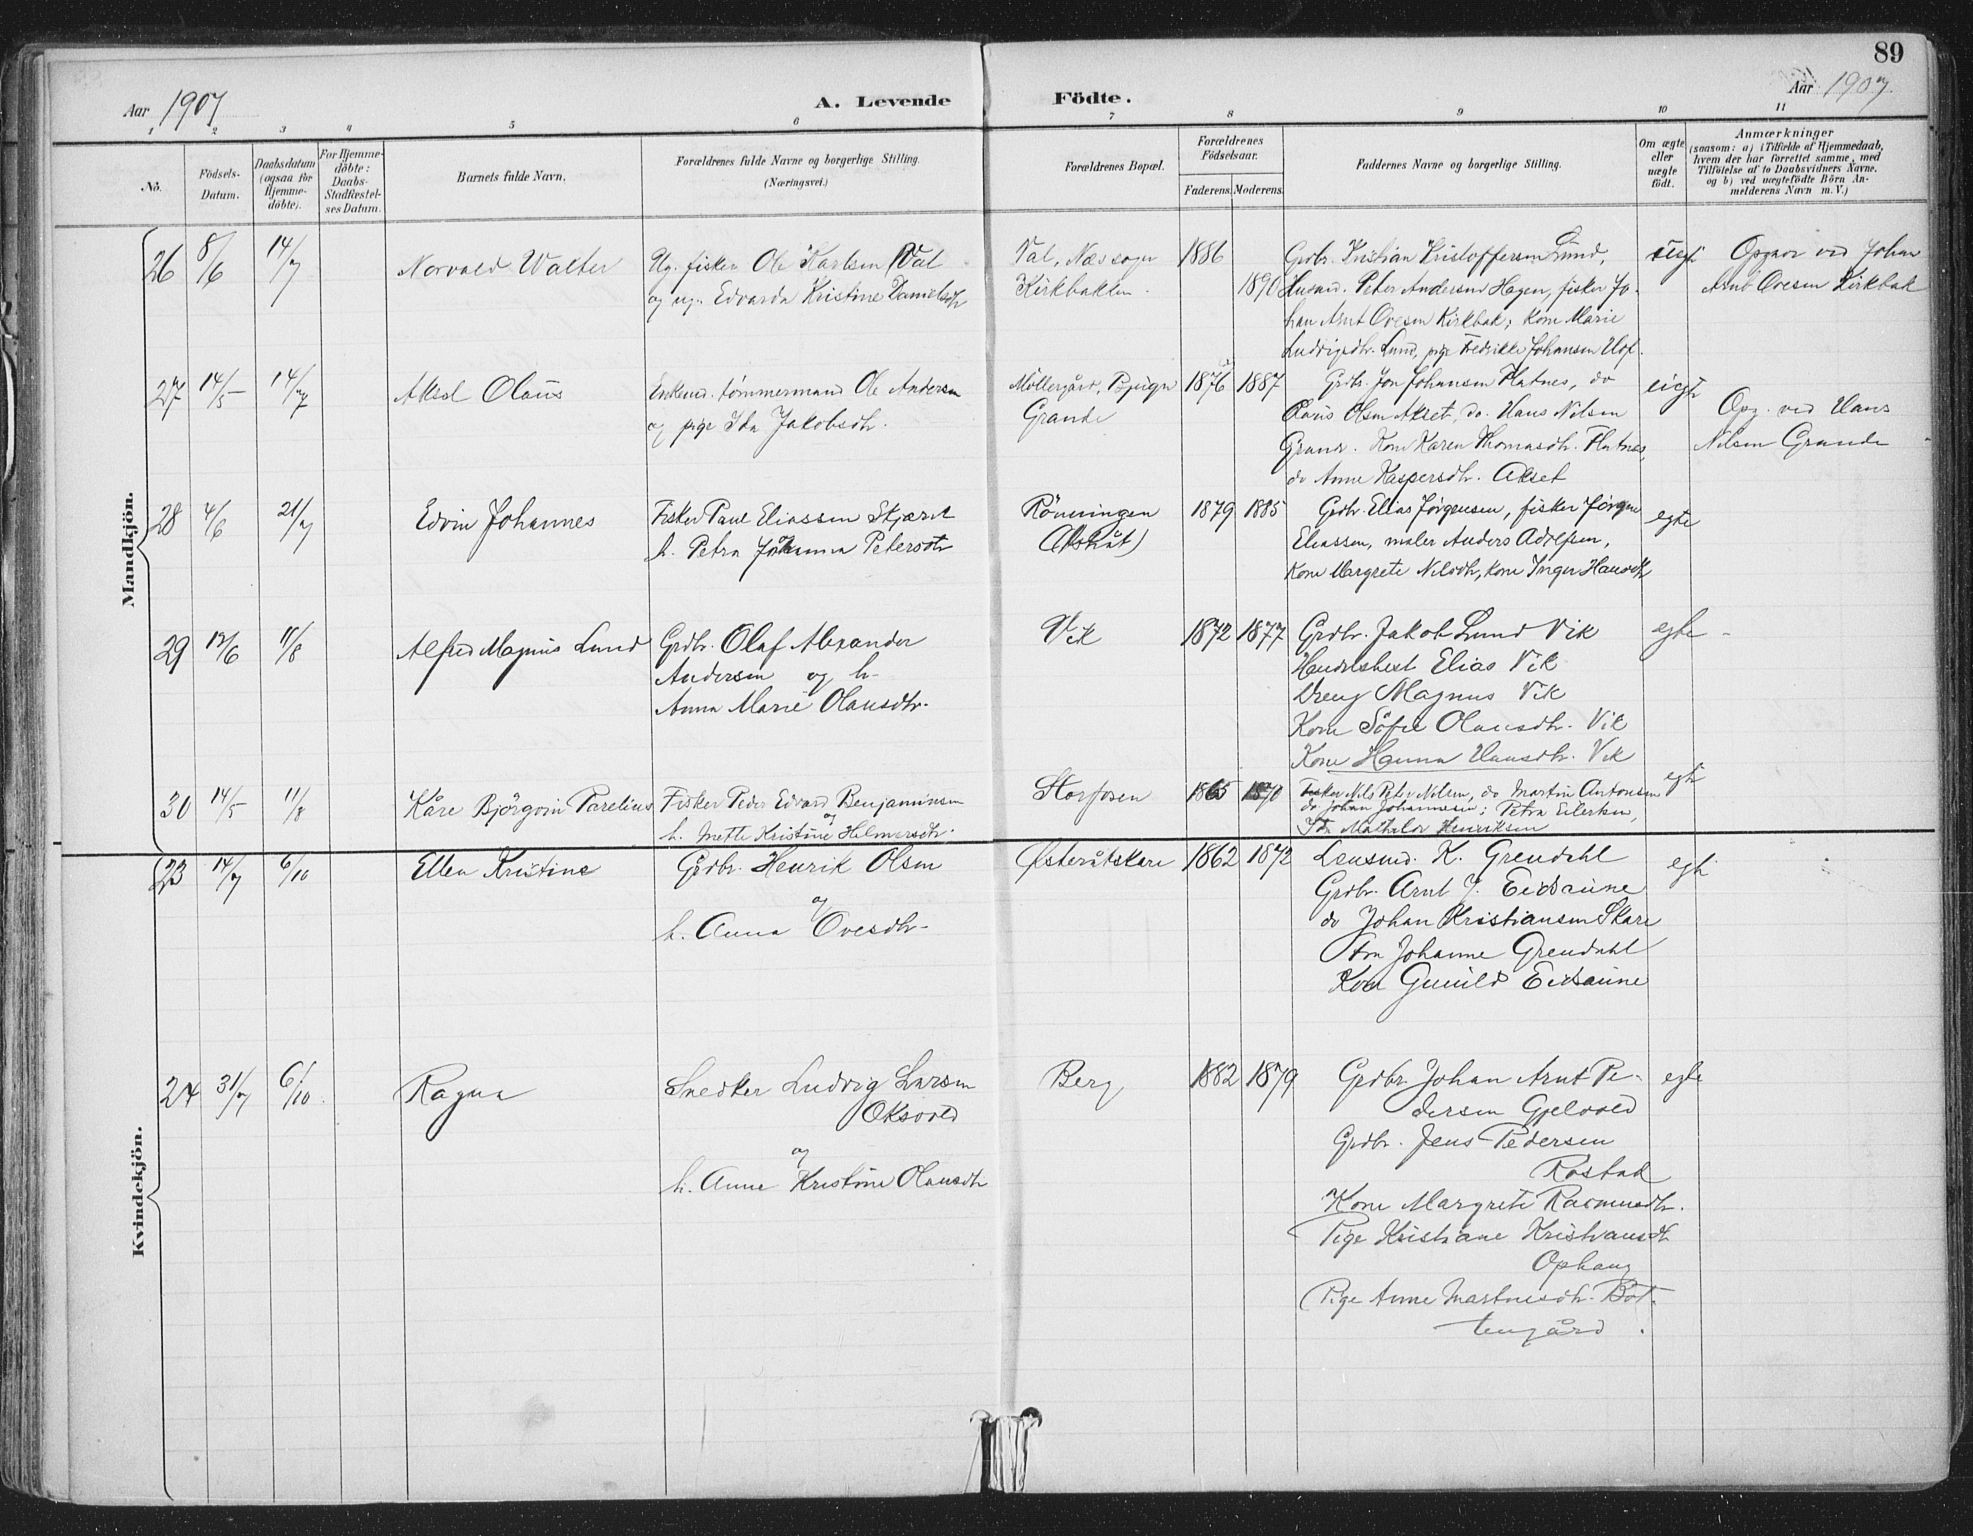 89
Aar 1907
A. Levende Födte.
Aar 1907.
1 2 3 4 5 6 7 8 9 10 11
No.
Födsels-Datum.
Daabsdatum (ogsaa for Hjemme-döbte).
For Hjemme-döbte: Daabs-Stadfæstel-ses Datum.
Barnets fulde Navn.
Forældrenes fulde Navne og borgerlige Stilling.
(Næringsvei.)
Forældrenes Bopæl.
Forældrenes Födselsaar.
Faderens. Moderens.
Faddernes Navne og borgerlige Stilling.
Om ægte eller uægte födt.
Anmærkninger
(saasom: a) i Tilfælde af Hjemmedaab, hvem der har forrettet samme, med Tilföielse af to Daabsvidners Navne, og b) ved uægtefödte Börn An-melderens Navn m. V.)
Mandkjön.
26 8/6 14/7 Norvald Walter
Ug. fisker Ole Karlsen Val
og ug. Edvarda Kristine Danielsdtr
Val, Næssogn
Kirkbakken.
1886
1890
Grdbr. Kristian Kristoffersen Lund,
Husmd. Peter Andersen Hagen, fisker Jo-
han Arnt Ovesen Kirkbak; Kone Marie
Ludvigsdtr. Lund, pige Fredrikke Johansen
Opgav ved Johan
Arnt Ovesen Kirkbak
27 14/5 14/7 Aksel Olaus
Enkemd. tømmermand Ole Andersen
og pige Ida Jakobsdtr.
Möllergård, Bjugn
Grande
1876 1887
Grdbr. Jon Johansen Flatnes, do
Olsen Akset, do. Hans Nilsen
Grande. Kone Karen Thomasdtr. Flatnes,
do Anne Kaspersdtr. Akset
Opg. ved Hans
Nilsen Grande
28 4/6 21/7 Edvin Johannes
Fisker Paul Eliassen
h. Petra Johanna Petersdtr
Rönningen
1879 1885
Grdbr. Elias Jørgensen, fisker Jørgen
Eliassen, maler Anders Adolfsen,
Kone Margrete Nilsdtr, kone Inger Hansdtr
egte
29 12/6 11/8 Alfred Magnus Lund
Grdbr. Olaf Alexander
Andersen og h.
Anna Marie Olausdtr.
Vik
1872 1877
Grdbr. Jakob Lund Vik
Handelsbest Elias Vik
Dreng Magnus Vik
Kone Söfie Olausdtr. Vik
Kone Hanna Hansdtr. Vik
egte
30 14/5 11/8 Kåre Björgvin Parelius
Fisker Peder Edvard Benjaminsen
og
h. Mette Kristine Helmersdtr.
Storfosen
1865 1870
Fisker Nils Peter Nilsen, do Martin Antonsen
do Johan Johannesen; Petra Eilertsen,
Ida Mathilde Henriksen
egte
Kvindekjön.
23 14/7 6/10 Ellen Kristine
Grdbr. Henrik Olsen
og
h. Anna Ovesdtr.
Østeråtskare
1862 1872
Lensmd. K. Grendahl
Grdbr. Arnt J. Eidsaune
do Johan Kristiansen Skare
Johanne Grendahl
Kone Gunild Eidsaune
egte
24 31/7 6/10 Ragna
Snedker Ludvig Larsen
Oksvold
og
h. Anne Kristine Olausdtr
Berg
1882 1879
Grdbr. Johan Arnt Pe-
dersen Gjelvold
Grdbr. Jens Pedersen
Rostad
Kone Margrete Rasmusdtr.
Pige Kristiane Kristiansdt
Ophaug
Pige Anne Martinusdtr. Bot-
tengård.
egte